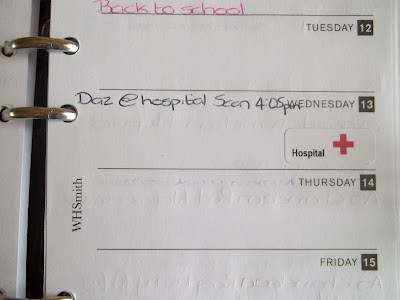 Back to school
TUESDAY 12
Daz @ hospital Scan 4:05pm WEDNESDAY 13
Hospital
THURSDAY 14
WHSmith
FRIDAY 15